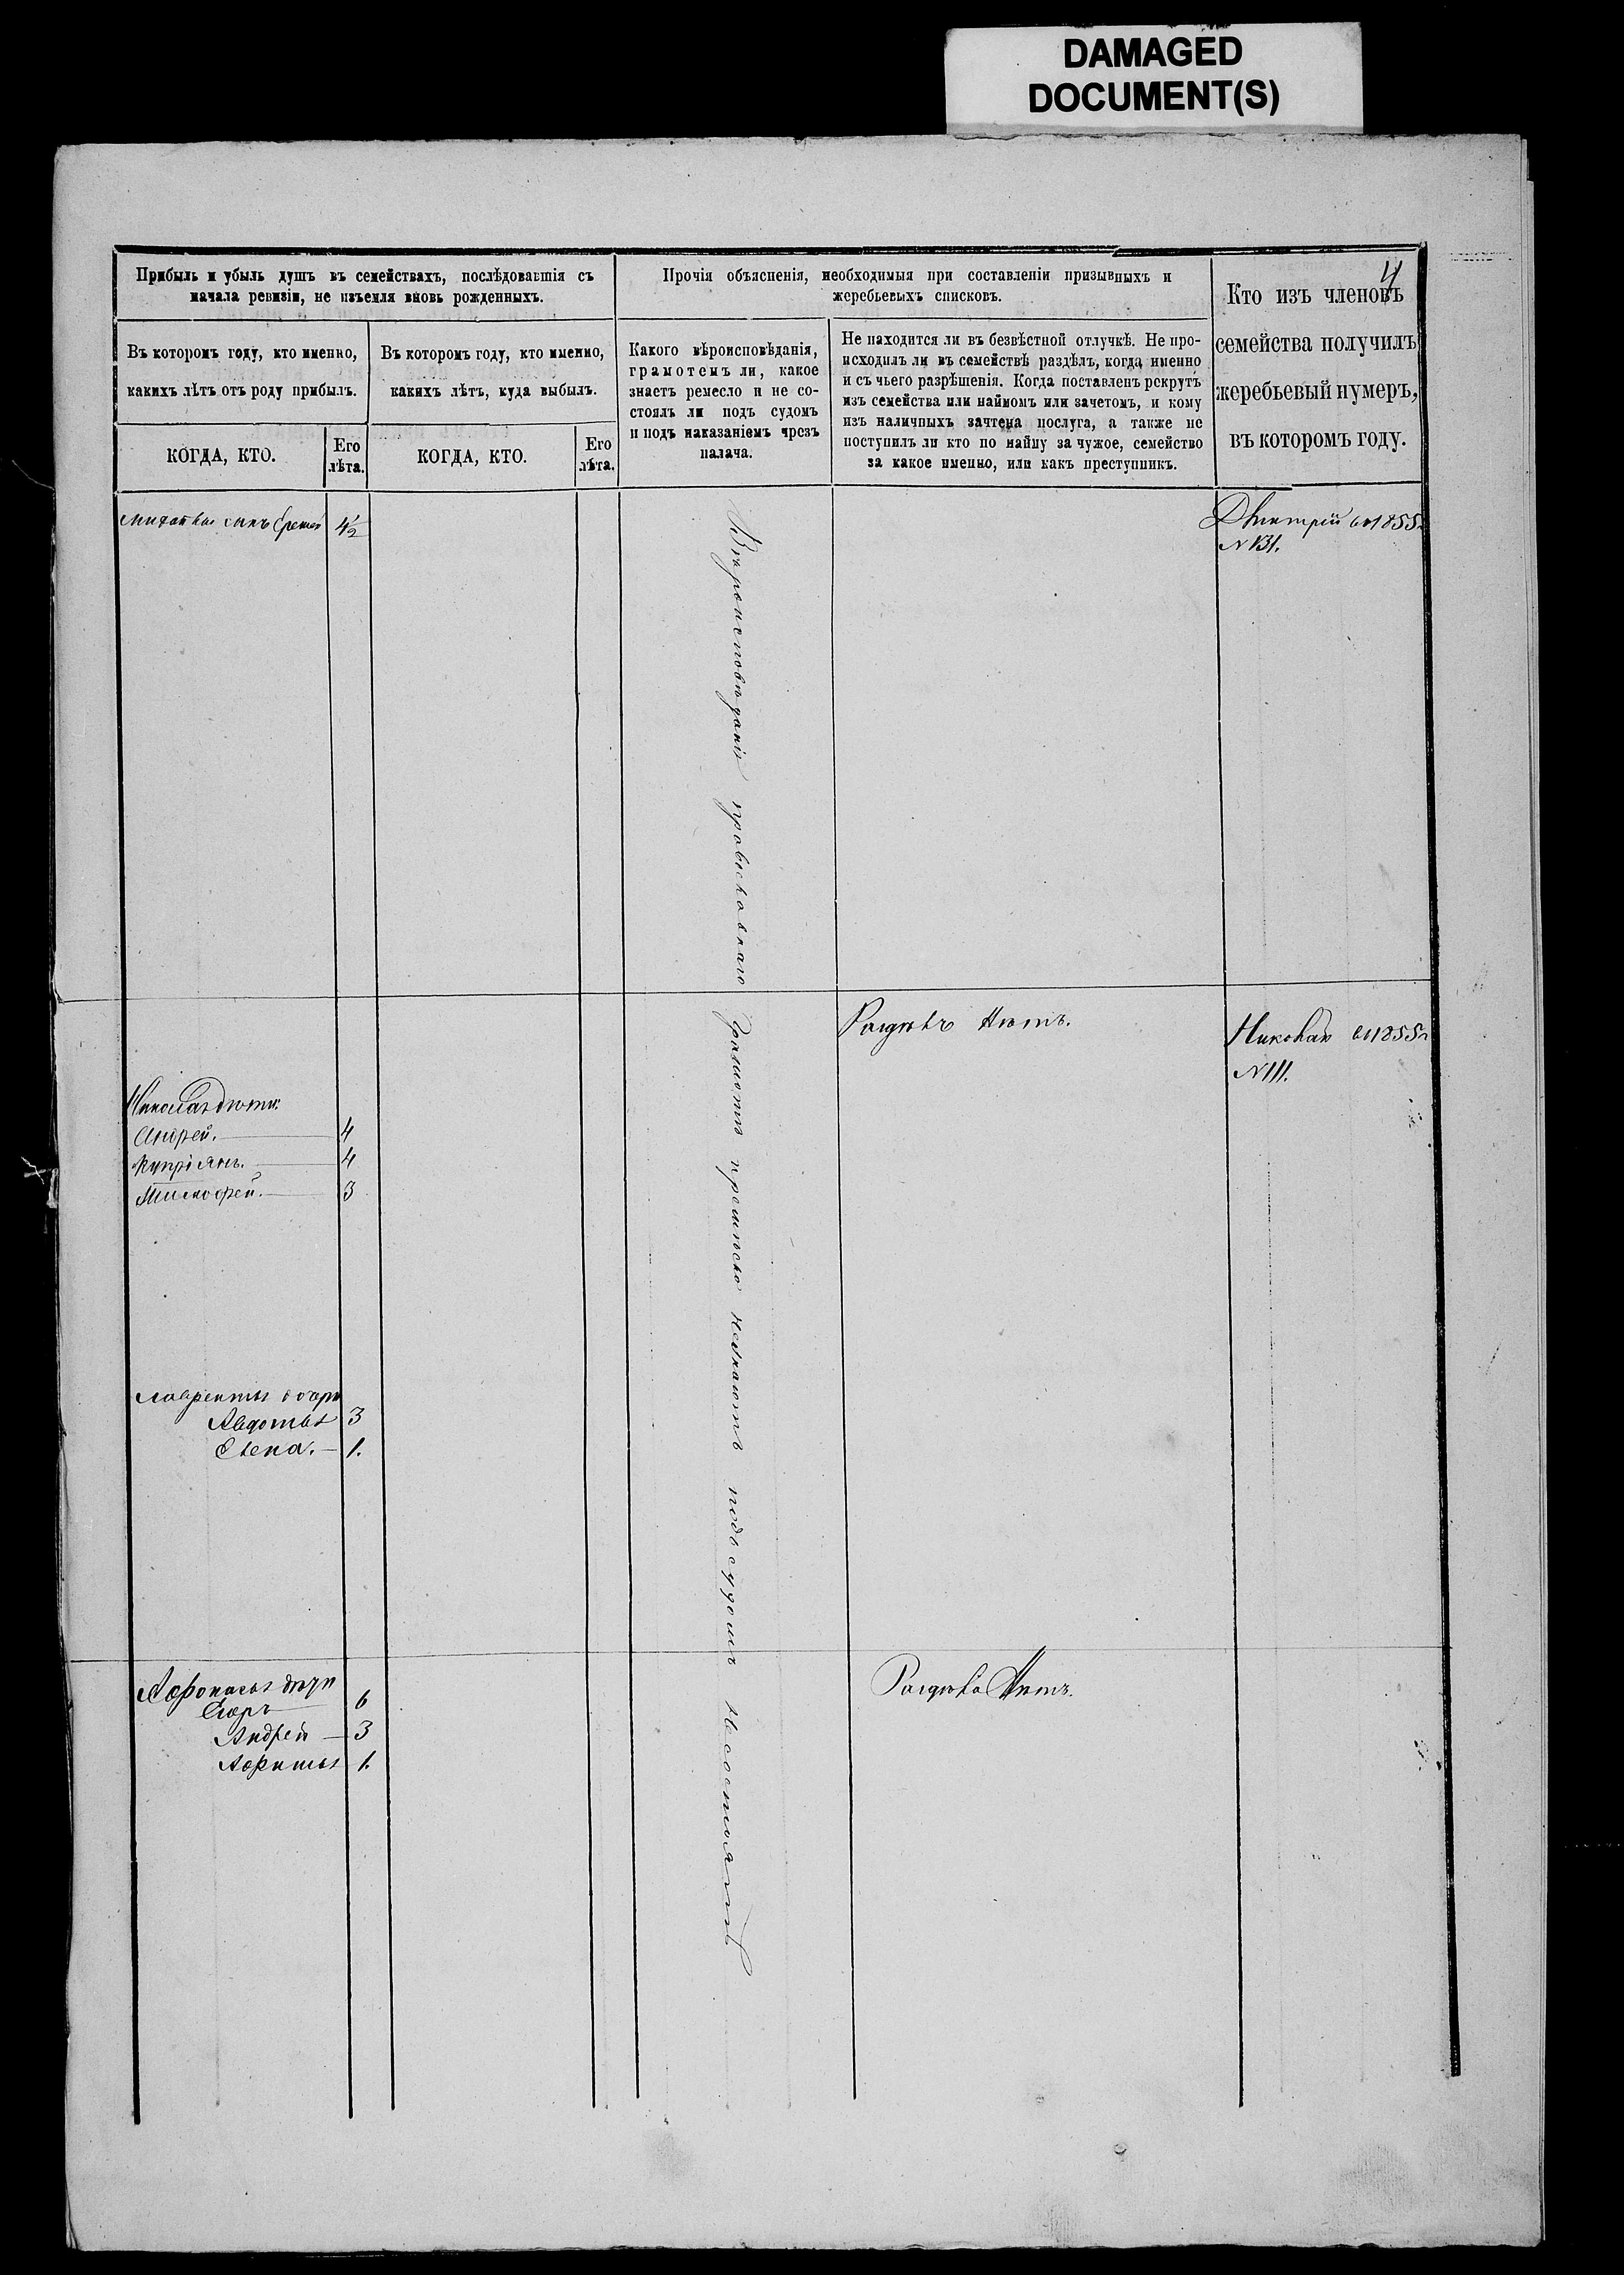 DAMAGED
DOCUMENT(S)
4
Прибыль и убыль душъ въ семействахъ, послѣдовавшія съ
начала ревизіи, не изъемля вновь рожденныхъ.
Прочія объясненія, необходимыя при составленіи призывныхъ и
жеребьевыхъ списковъ.
Кто изъ членовъ
семейства получилъ
жеребьевый нумеръ,
въ которомъ году.
Въ которомъ году, кто именно,
какихъ лѣтъ отъ роду прибылъ.
Въ которомъ году, кто именно,
какихъ лѣтъ, куда выбылъ.
Какого вѣроисповѣданія,
грамотенъ ли, какое
знаетъ ремесло и не со-
стоялъ ли подъ судомъ
и подъ наказаніемъ чрезъ
палача.
Не находится ли въ безвѣстной отлучкѣ. Не про-
исходилъ ли въ семействѣ раздѣлъ, когда именно
и съ чьего разрѣшенія. Когда поставленъ рекрутъ
изъ семейства или наймомъ или зачетомъ, и кому
изъ наличныхъ зачтена послуга, а также не
поступилъ ли кто по найму за чужое, семейство
за какое именно, или какъ преступникъ.
КОГДА, КТО.
Его
лѣта.
КОГДА, КТО.
Его
лѣта.
сынъ 4½
Дмитрій 1855
N 131.
Вѣроисповѣданія православнаго подъ судомъ несостоялъ
нѣтъ.
Николай 1855
N 111.
Николая дѣти:
Андрей. 4
Купріянъ. 4
Тимофей. 3
Лаврентья дочери
Авдотья 3
Елена. 1.
Афонасья дѣти
Егоръ 6
Андрей 3
1.
Раздѣла нѣтъ.